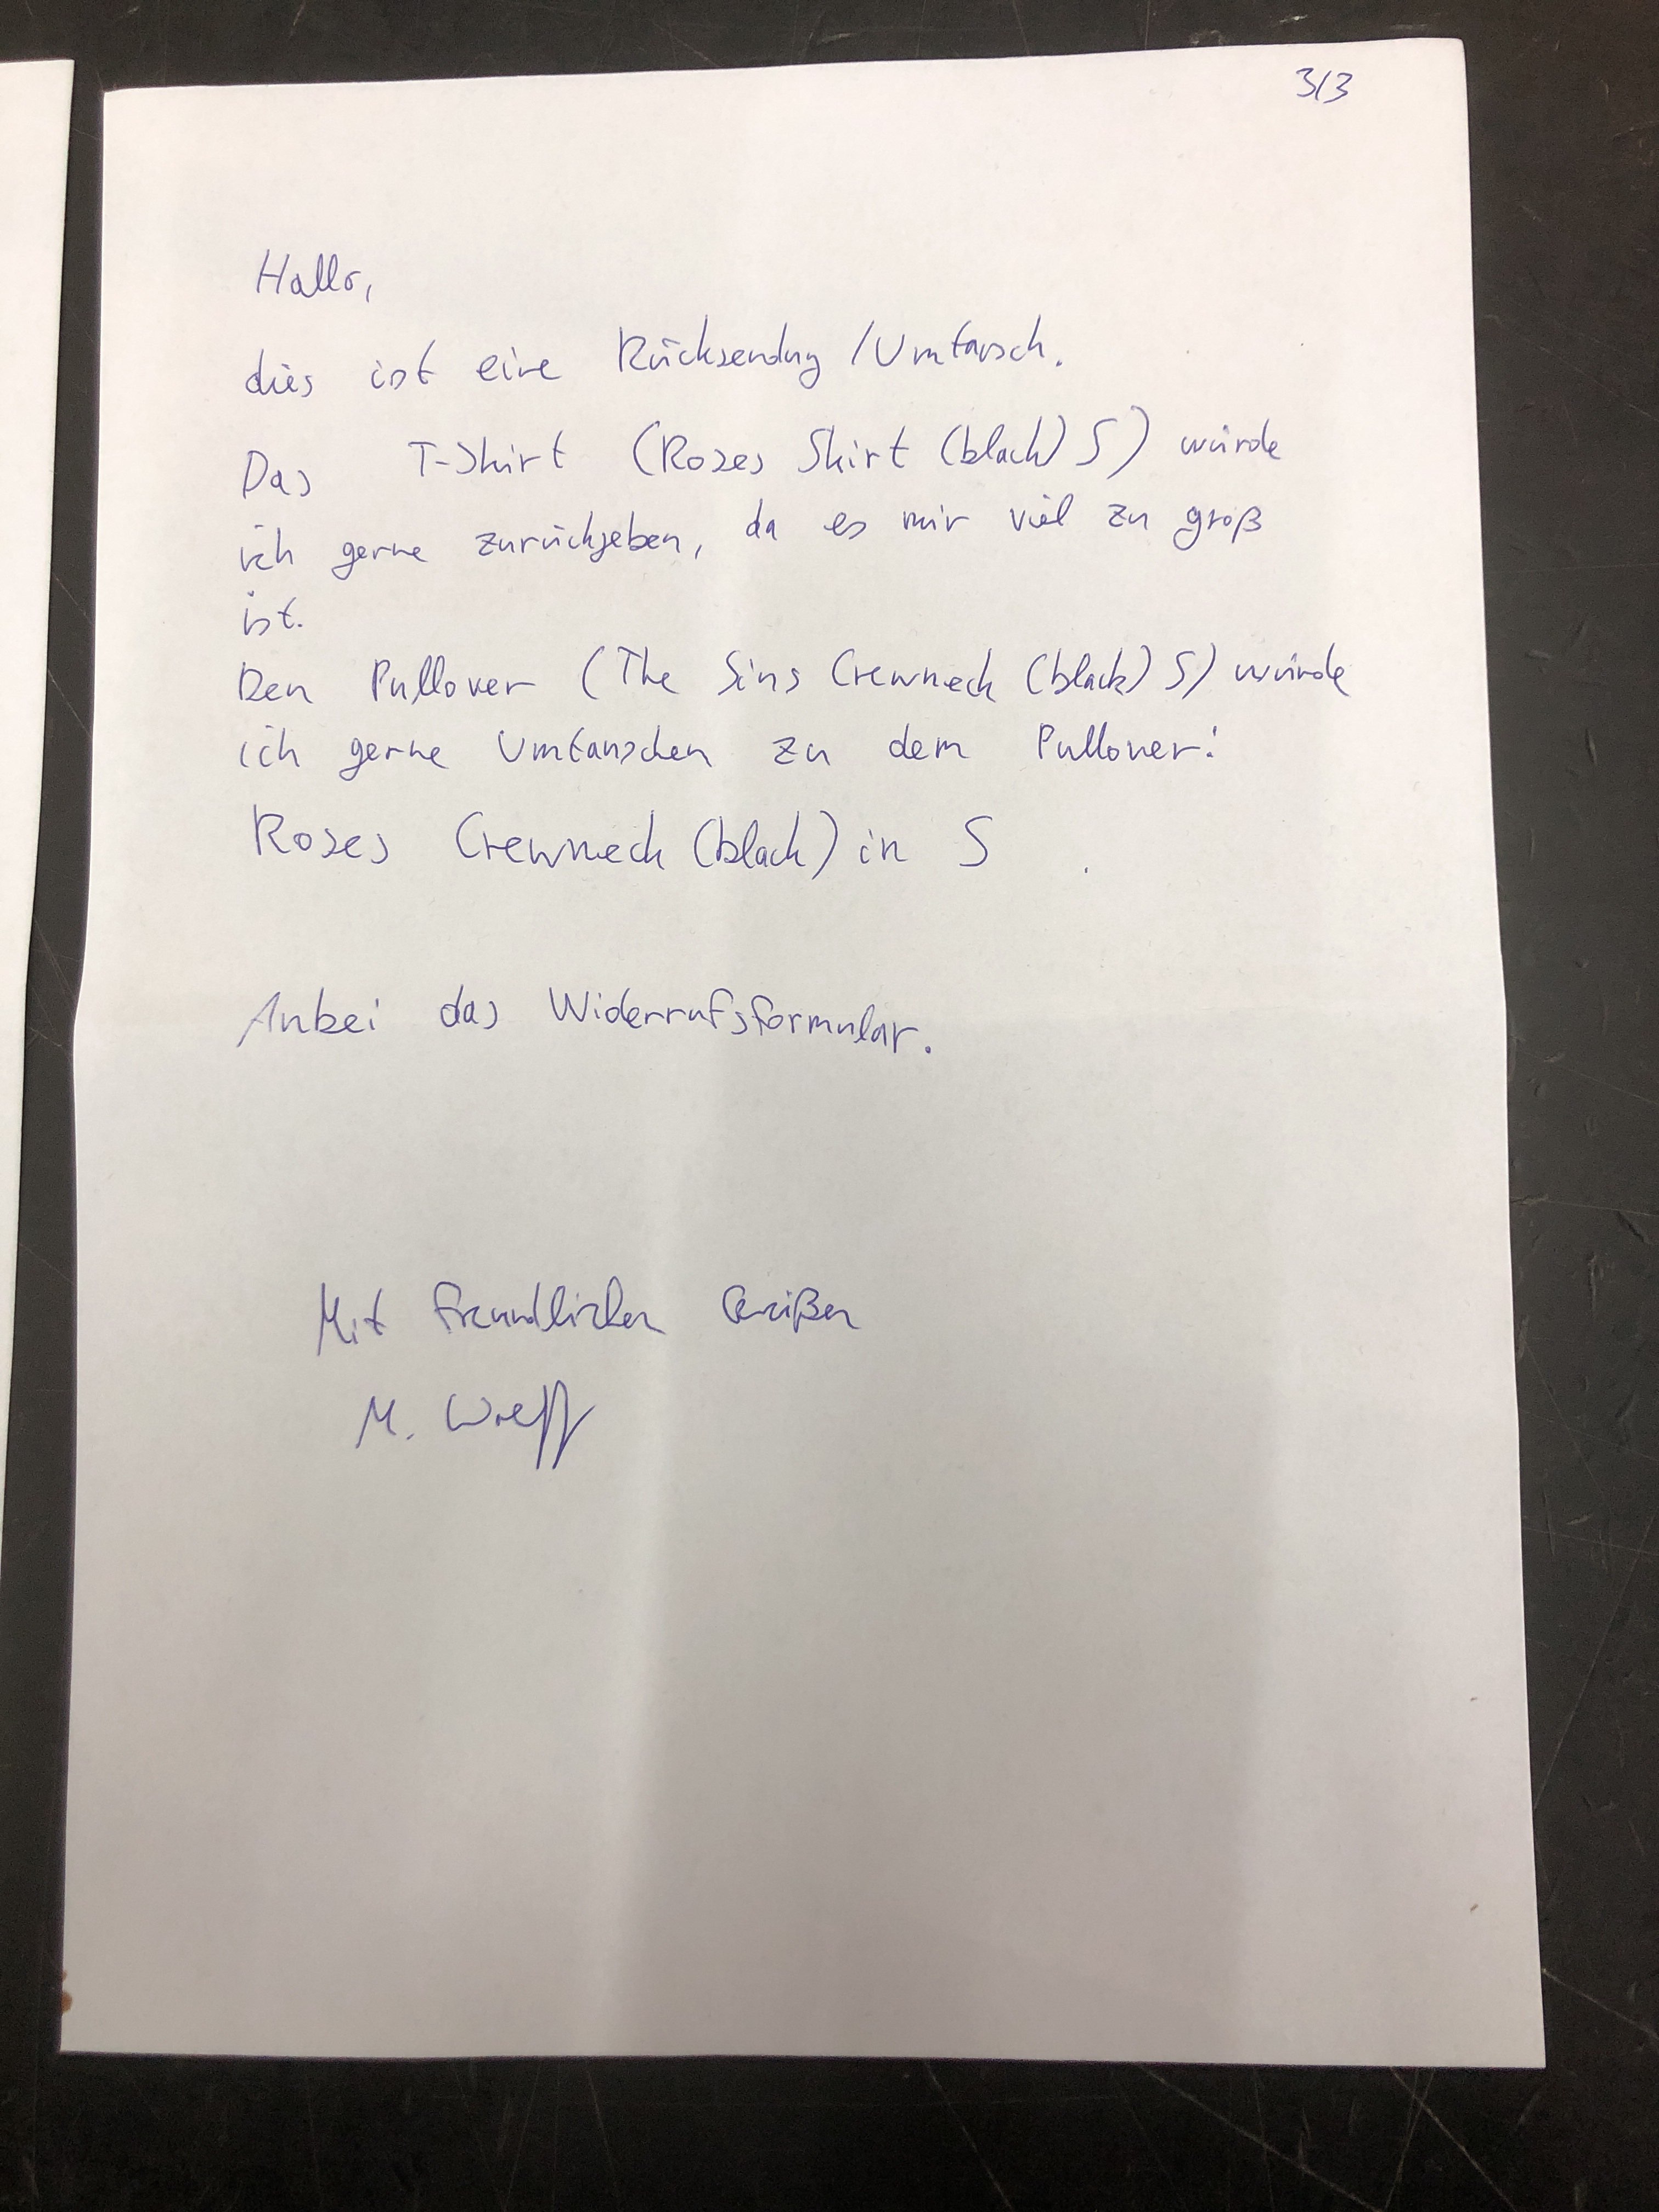 3/3
Hallo,
dies ist eine Rücksendung / Umtausch.
Das T-Shirt (Roses Shirt (black) S) würde
ich gerne zurückgeben, da es mir viel zu groß
ist.
Den Pullover (The Sins Crewneck (black) S) würde
ich gerne Umtauschen zu dem Pullover:
Roses Crewneck (black) in S
Anbei das Widerrufsformular.
Mit freundlichen Grüßen
M.